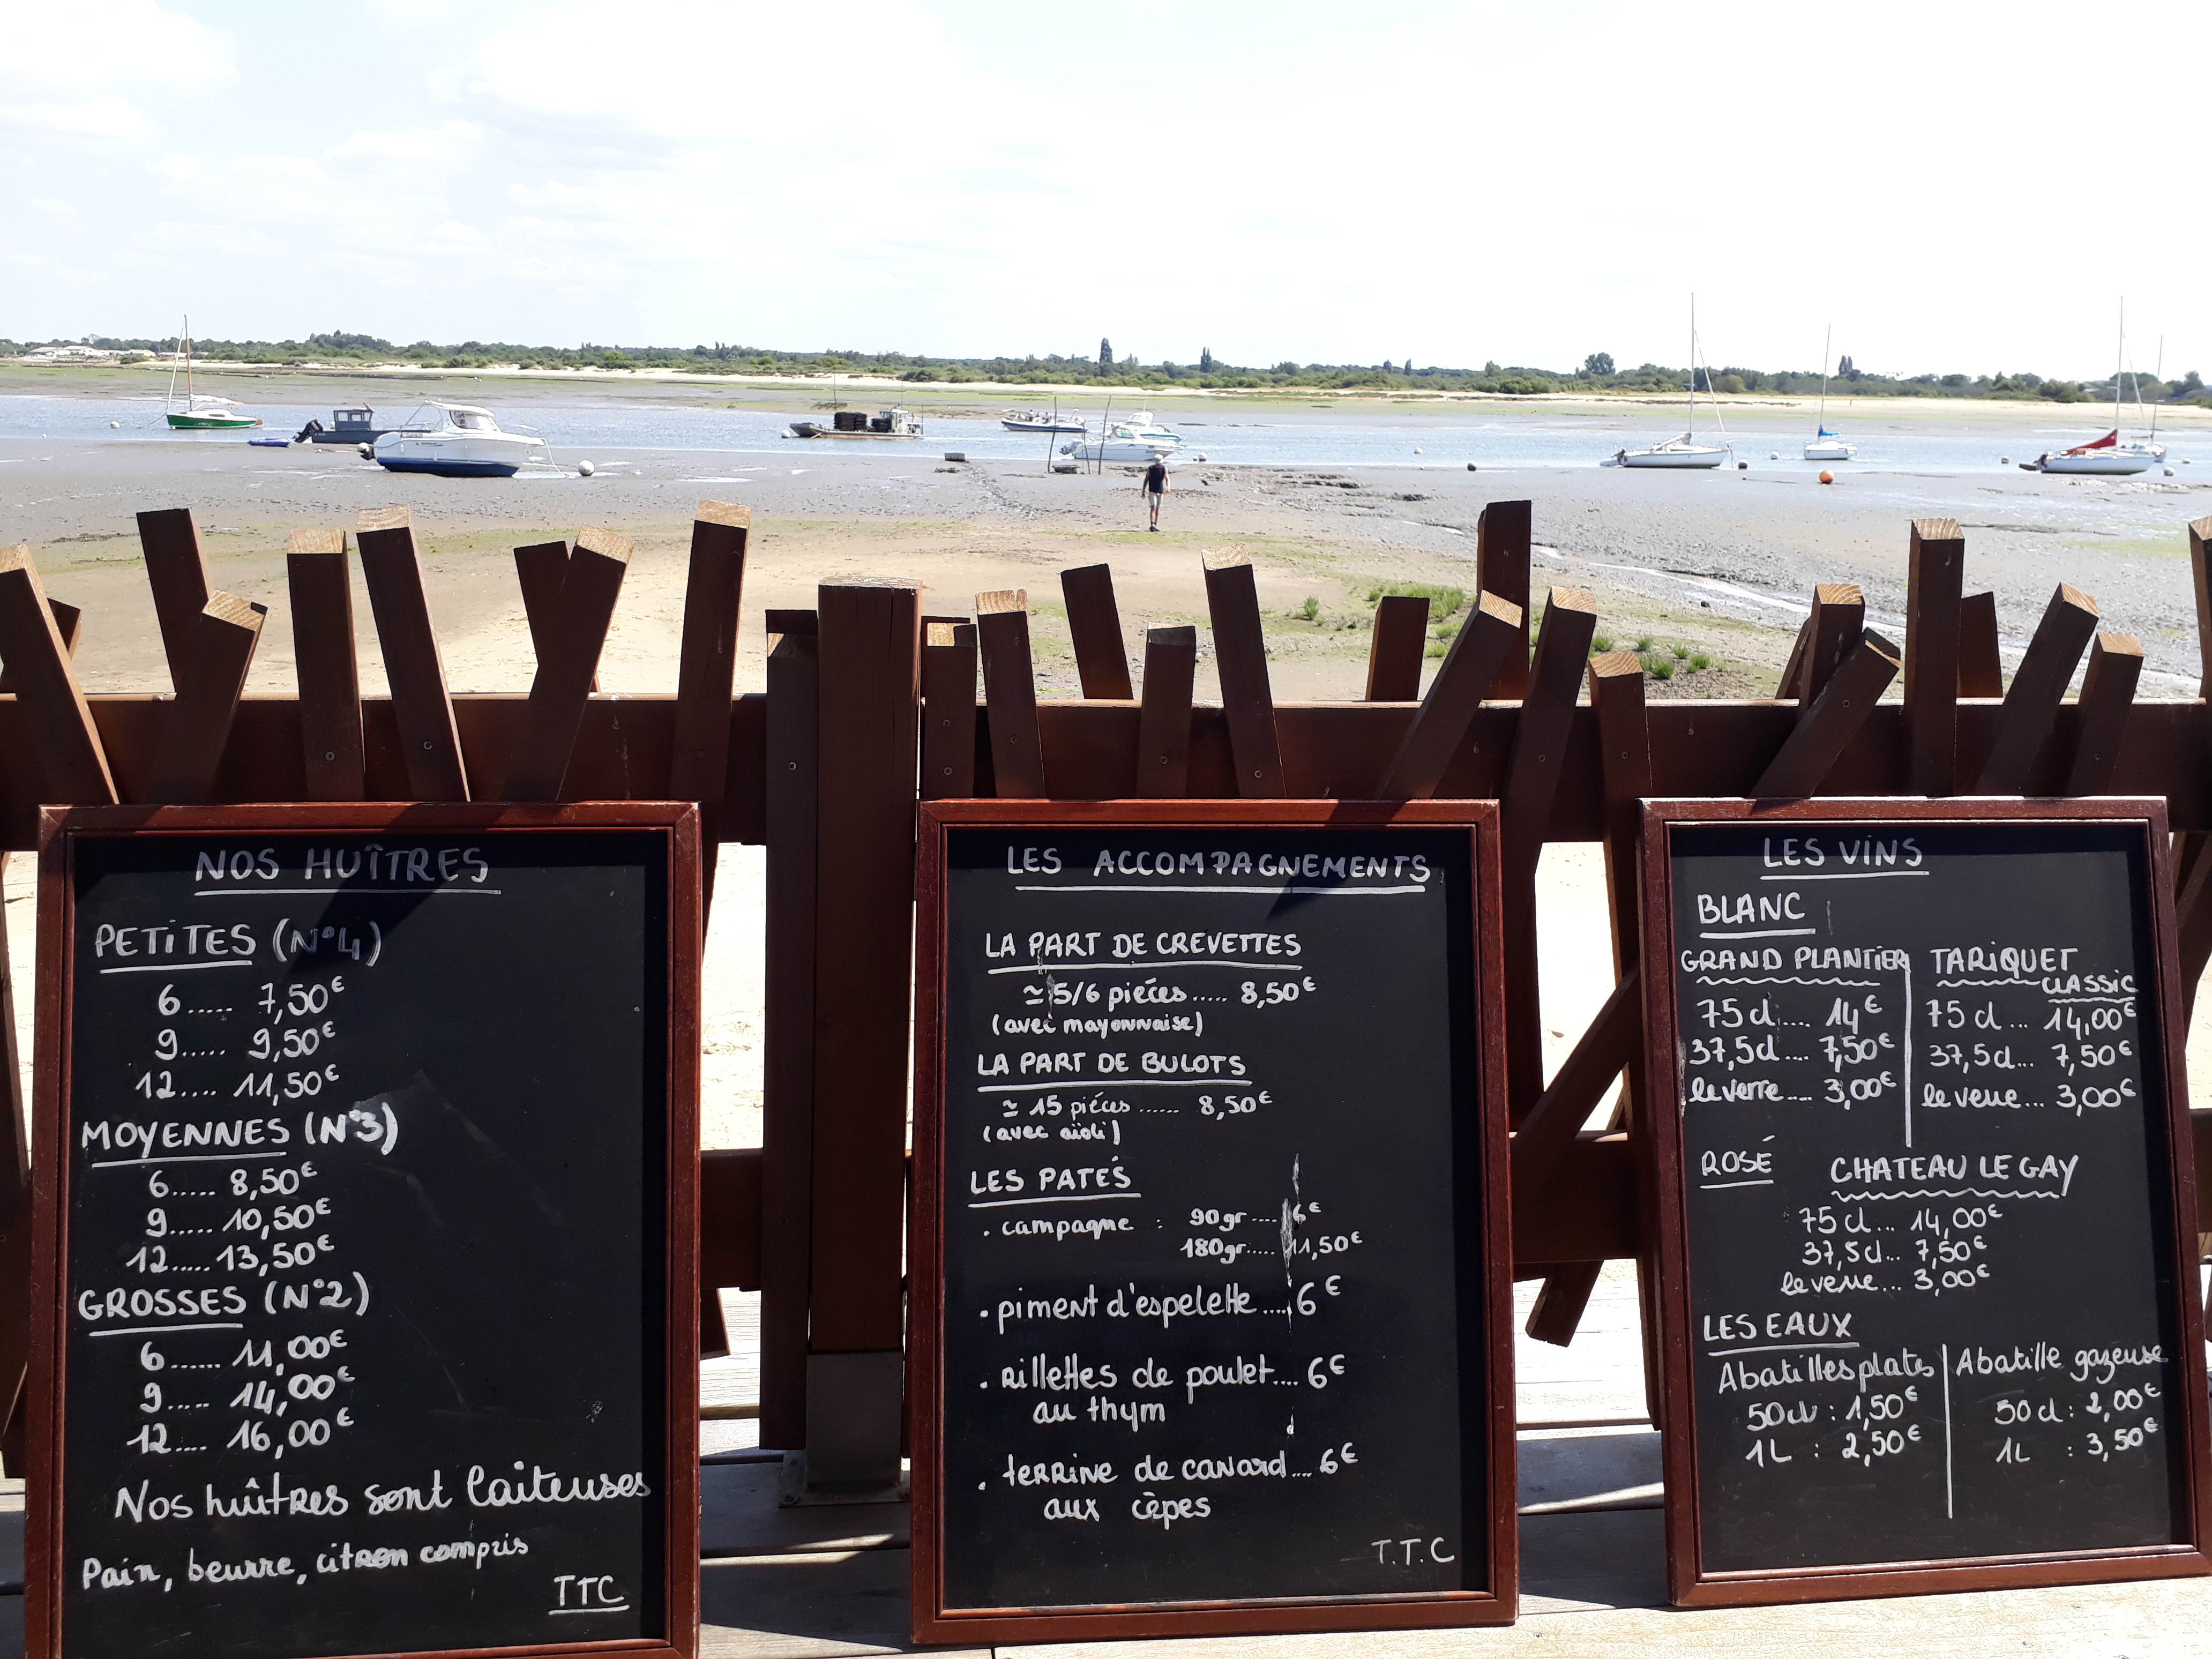 NOS HUÎTRES
PETITES (N°4)
6..... 7,50€
9..... 9,50€
12.... 11,50€
MOYENNES (N°3)
6..... 8,50€
9..... 10,50€
12..... 13,50€
GROSSES (N°2)
6...... 11,00€
9..... 14,00€
12.... 16,00€
Nos huîtres sont laiteuses
Pain, beurre, citron compris
TTC
LES ACCOMPAGNEMENTS
LA PART DE CREVETTES
≃ 5/6 piéces..... 8,50€
(avec mayonnaise)
LA PART DE BULOTS
≃ 15 piéces ...... 8,50€
(avec aïoli)
LES PATÉS
. campagne : 90gr .... 6€
180gr..... 11,50€
. piment d'espelette .... 6€
. Rillettes de poulet.... 6€
au thym
. terrine de canard.... 6€
aux cèpes
T.T.C
LES VINS
BLANC
GRAND PLANTIER
75 cl.... 14€
37,5cl.... 7,50€
le verre.... 3,00€
TARIQUET
CLASSIC
75 cl... 14,00€
37,5cl... 7,50€
le verre... 3,00€
ROSÉ CHATEAU LE GAY
75 cl... 14,00€
37,5cl... 7,50€
le verre... 3,00€
LES EAUX
Abatilles plates
50cl : 1,50€
1L : 2,50€
Abatille gazeuse
50 cl : 2,00€
1L : 3,50€